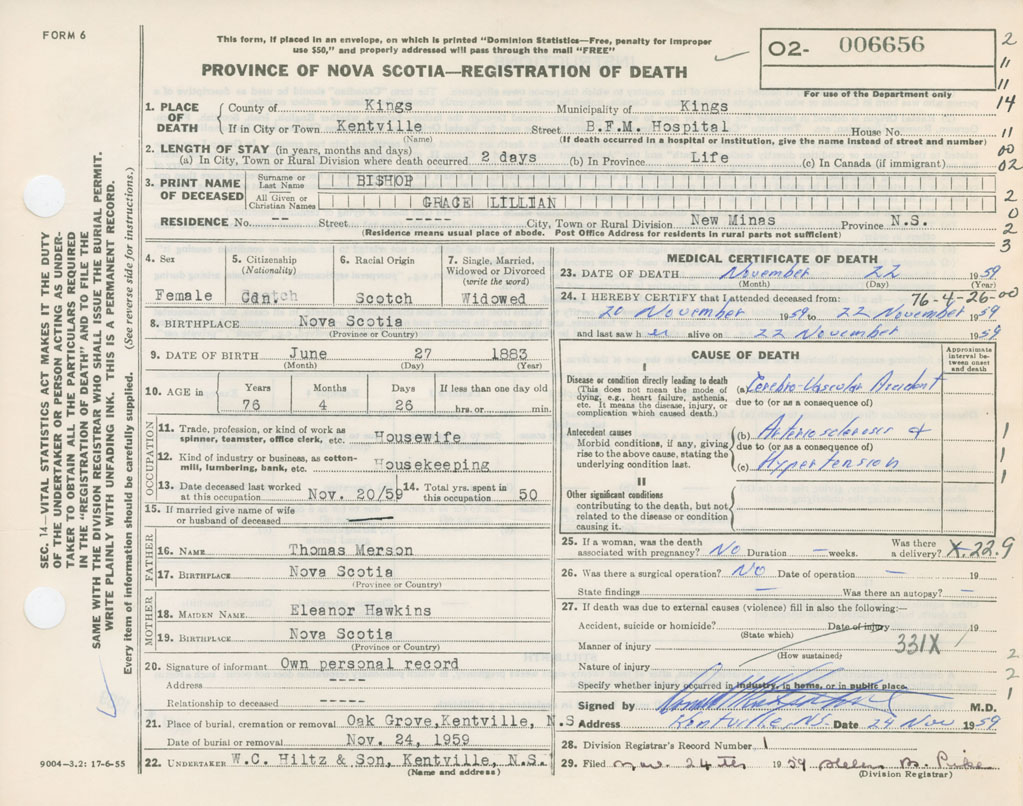 FORM 6
This form, if placed in an envelope, on which is printed "Dominion Statistics—Free, penalty for improper
use $50," and properly addressed will pass through the mail "FREE"
O2- 006656
For use of the Department only
PROVINCE OF NOVA SCOTIA—REGISTRATION OF DEATH
2
11
11
14
11
00
02
2
0
2
3
SEC. 14—VITAL STATISTICS ACT MAKES IT THE DUTY
OF THE UNDERTAKER OR PERSON ACTING AS UNDER-
TAKER TO OBTAIN ALL THE PARTICULARS REQUIRED
IN THE "REGISTRATION OF DEATH" AND TO FILE THE
SAME WITH THE DIVISION REGISTRAR WHO SHALL ISSUE THE BURIAL PERMIT.
WRITE PLAINLY WITH UNFADING INK. THIS IS A PERMANENT RECORD.
Every item of information should be carefully supplied. (See reverse side for instructions.)
1. PLACE OF DEATH County of Kings Municipality of Kings
If in City or Town Kentville Street B.F.M. Hospital House No.
(Name) (If death occurred in a hospital or institution, give the name instead of street and number)
2. LENGTH OF STAY (in years, months and days)
(a) In City, Town or Rural Division where death occurred 2 days (b) In Province Life (c) In Canada (if immigrant)
3. PRINT NAME OF DECEASED Surname or Last Name BISHOP
All Given or Christian Names GRACE LILLIAN
RESIDENCE No. -- Street ----- City, Town or Rural Division New Minas Province N.S.
(Residence means usual place of abode. Post Office Address for residents in rural parts not sufficient)
4. Sex 5. Citizenship (Nationality) 6. Racial Origin 7. Single, Married, Widowed or Divorced (write the word)
Female Cdn. Scotch Widowed
8. BIRTHPLACE Nova Scotia
(Province or Country)
9. DATE OF BIRTH June 27 1883
(Month) (Day) (Year)
10. AGE in Years Months Days If less than one day old
76 4 26 hrs. or min.
OCCUPATION
11. Trade, profession, or kind of work as spinner, teamster, office clerk, etc. Housewife
12. Kind of industry or business, as cotton-mill, lumbering, bank, etc. Housekeeping
13. Date deceased last worked at this occupation Nov. 20/59 14. Total yrs. spent in this occupation 50
15. If married give name of wife or husband of deceased
FATHER
16. NAME Thomas Merson
17. BIRTHPLACE Nova Scotia
(Province or Country)
MOTHER
18. MAIDEN NAME Eleanor Hawkins
19. BIRTHPLACE Nova Scotia
(Province or Country)
20. Signature of informant Own personal record
Address ----
Relationship to deceased -----
21. Place of burial, cremation or removal Oak Grove, Kentville, N.S
Date of burial or removal Nov. 24, 1959
22. UNDERTAKER W.C. Hiltz & Son, Kentville, N.S.
(Name and address)
9004-3.2: 17-6-55
MEDICAL CERTIFICATE OF DEATH
23. DATE OF DEATH November 22 1959
(Month) (Day)
24. I HEREBY CERTIFY that I attended deceased from: 76-4-26-00
20 November 1959 to 22 November 1959
and last saw her alive on 22 November 1959
CAUSE OF DEATH
Approximate interval between onset and death
I
Disease or condition directly leading to death
(This does not mean the mode of dying, e.g., heart failure, asthenia, etc. It means the disease, injury, or complication which caused death.)
(a) Cerebro-Vascular Accident
due to (or as a consequence of)
Antecedent causes
Morbid conditions, if any, giving rise to the above cause, stating the underlying condition last.
(b) Arteriosclerosis +
due to (or as a consequence of)
(c) Hypertension
1
1
1
II
Other significant conditions
contributing to the death, but not related to the disease or condition causing it.
25. If a woman, was the death associated with pregnancy? No Duration — weeks. Was there a delivery? X.22.9
26. Was there a surgical operation? No Date of operation — 19
State findings — Was there an autopsy? —
27. If death was due to external causes (violence) fill in also the following:—
Accident, suicide or homicide? Date of injury 19
(State which)
Manner of injury 331X
(How sustained)
Nature of injury
Specify whether injury occurred in industry, in home, or in public place.
2
2
1
Signed by M.D.
Address Kentville, N.S. Date 24 Nov 1959
28. Division Registrar's Record Number 1
29. Filed Nov. 24th 1959 Helen B.
(Division Registrar)